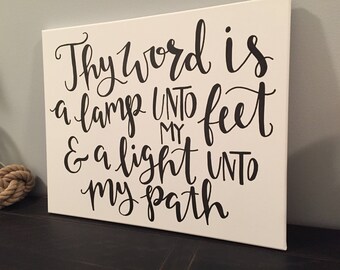 Thy word is
a lamp UNTO MY feet
& a light UNTO
my path